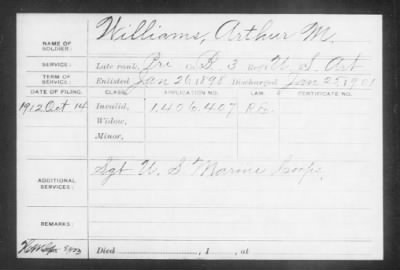 Williams, Arthur M.
NAME OF SOLDIER:
SERVICE: Late rank, Pri Co. B. 3 Reg't U S Art
TERM OF SERVICE: Enlisted Jan 26 1898 Discharged Jan 25 1901
DATE OF FILING. CLASS. APPLICATION NO. LAW. CERTIFICATE NO.
1912 Oct 14 Invalid, 1,406,407
Widow,
Minor,
ADDITIONAL SERVICES: Sgt U. S Marine Corps,
REMARKS:
Died , 1 , at